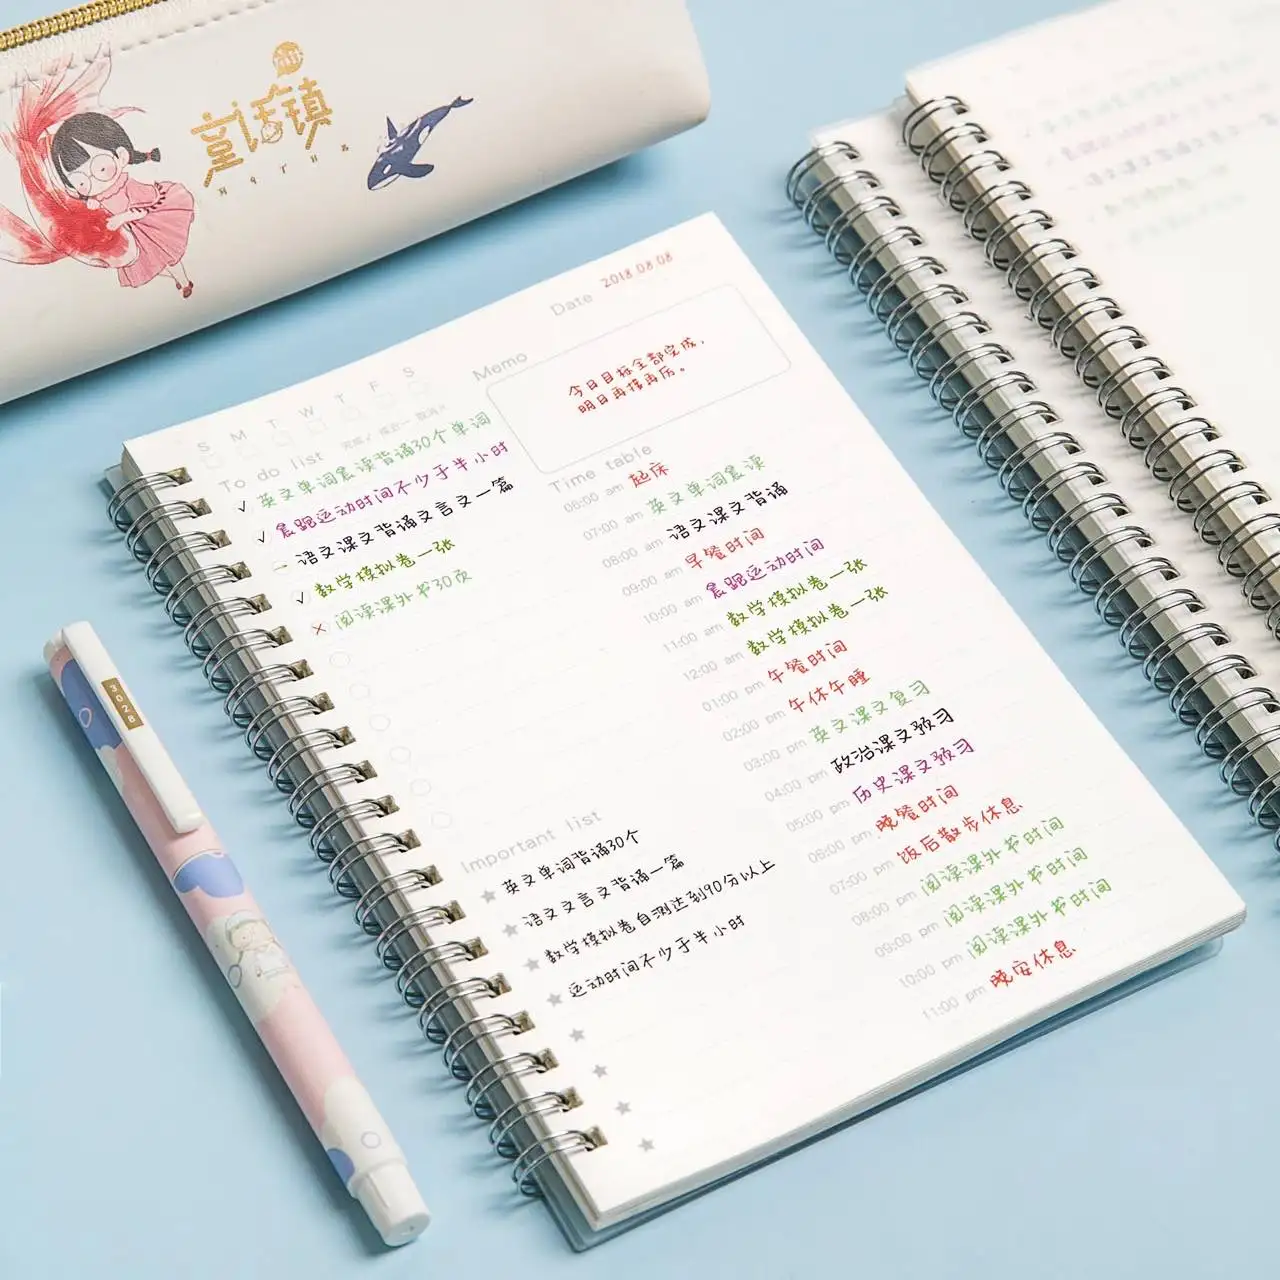 童话镇
2018.08.08
Date
Memo
今日目标全部完成,
明日再接再厉。
S M T W T F S
To do list
✓ 英文单词晨读背诵30个单词
✓ 晨跑运动时间不少于半小时
- 语文课文背诵文言文一篇
✓ 数学模拟卷一张
× 阅读课外书30页
Important list
英文单词背诵30个
语文文言文背诵一篇
数学模拟卷自测达到90分以上
运动时间不少于半小时
Time table
06:00 am 起床
07:00 am 英文单词晨读
08:00 am 语文课文背诵
09:00 am 早餐时间
10:00 am 晨跑运动时间
11:00 am 数学模拟卷一张
12:00 am 数学模拟卷一张
01:00 pm 午餐时间
02:00 pm 午休午睡
03:00 pm 英文课文复习
04:00 pm 政治课文预习
05:00 pm 历史课文预习
06:00 pm 晚餐时间
07:00 pm 饭后散步休息
08:00 pm 阅读课外书时间
09:00 pm 阅读课外书时间
10:00 pm 阅读课外书时间
11:00 pm 晚安休息
3028